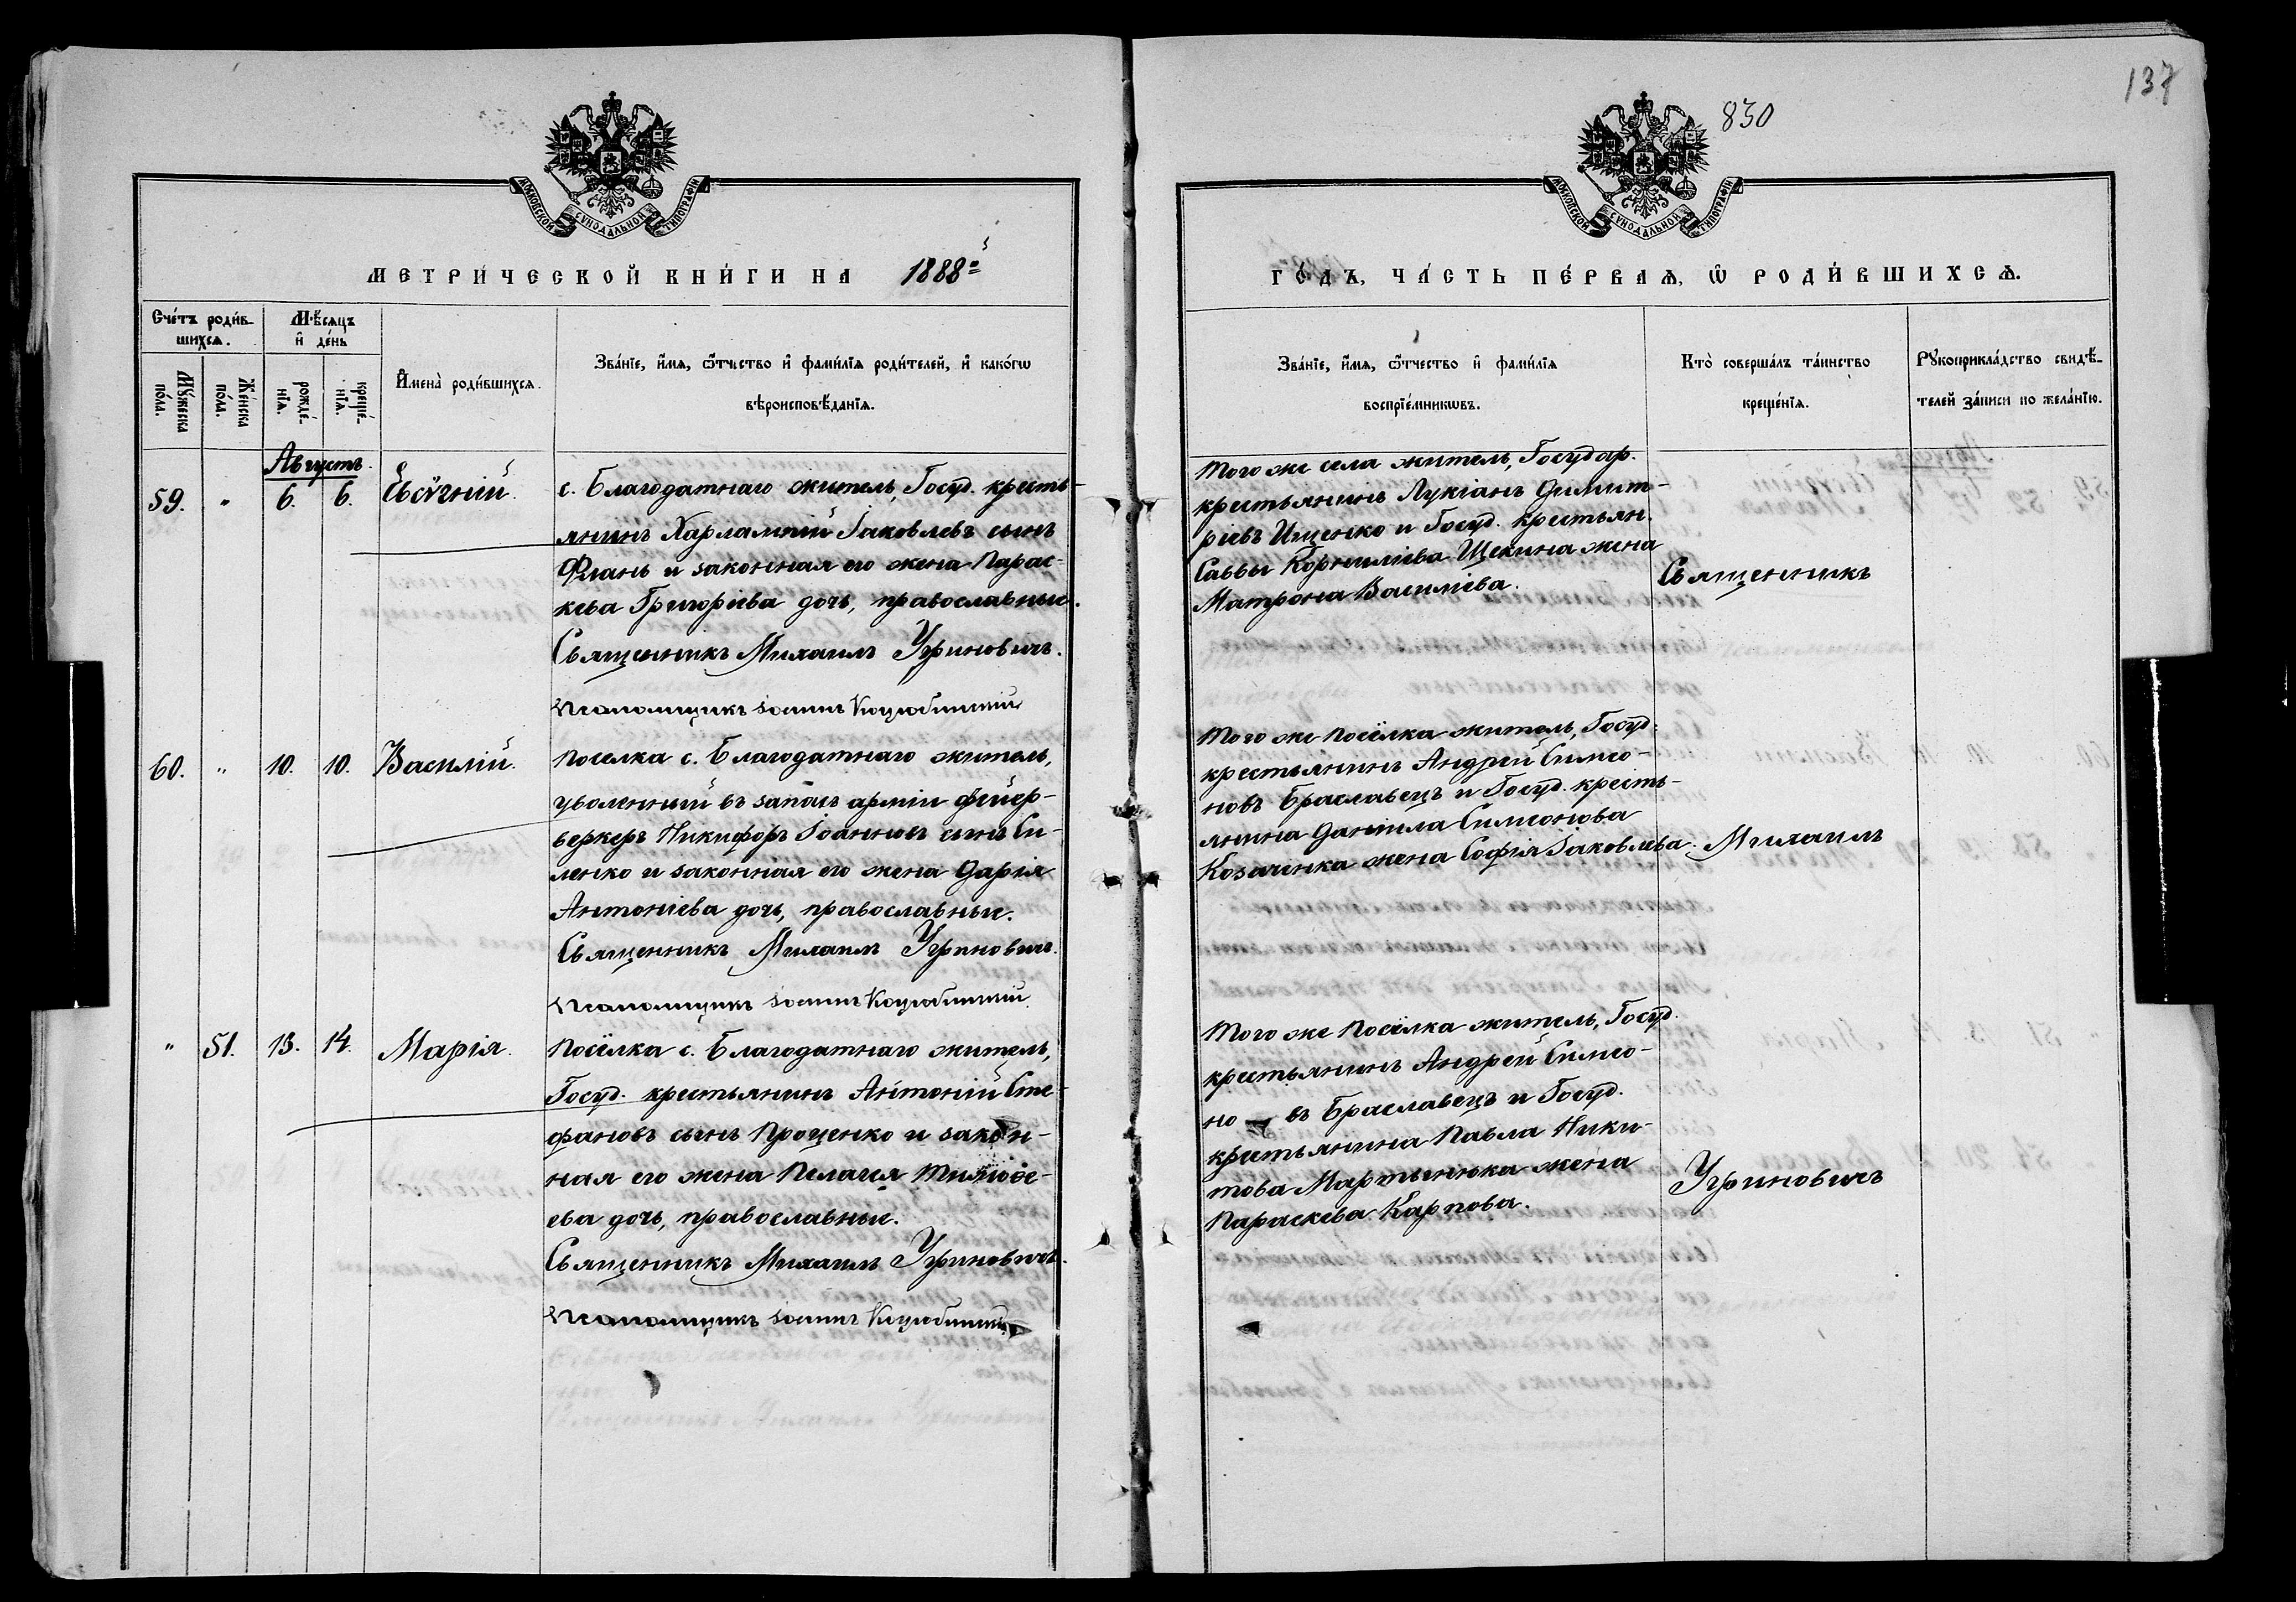 137
830
МОСКОВСКОЙ СѴНОДАЛЬНОЙ ТИПОГРАФІИ
МОСКОВСКОЙ СѴНОДАЛЬНОЙ ТИПОГРАФІИ
МЕТРИ́ЧЕСКОЙ КНИ́ГИ НА 1888й
ГО́ДЪ, ЧА́СТЬ ПЕ́РВАѦ, Ѡ҆ РОДИ́ВШИХСѦ.
Сче́тъ роди́в-
шихсѧ.
Мꙋ́жеска по́ла.
Же́нска по́ла.
Мѣ́сѧцъ
и҆ де́нь
рожде́-
нїѧ.
креще́-
нїѧ.
И҆мена̀ роди́вшихсѧ.
Зва́нїе, и҆́мѧ, ѻ҆́тчество и҆ фами́лїѧ роди́телей, и҆ како́гѡ
вѣроисповѣ́данїѧ.
Зва́нїе, и҆́мѧ, ѻ҆́тчество и҆ фами́лїѧ
воспрїе́мникѡвъ.
Кто̀ соверша́лъ та́инство
креще́нїѧ.
Рꙋкоприкла́дство свидѣ́-
телей за́писи по жела́нїю.
Августъ.
59. " 6. 6. Евсѵгній.
с. Благодатнаго житель, Госуд. кресть-
янинъ Харлампій Іаковлевъ сынъ
Флань и законная его жена Парас-
кева Григоріева дочь, православные.
Священникъ Михаилъ Угриновичъ.
Псаломщикъ Іоаннъ Коцюбинскій
Того же села житель, Государ.
крестьянинъ Лукіанъ Димит-
ріевъ Ищенко и Госуд. крестьян.
Саввы Корниліева Щекина жена
Матрона Василіева.
Священникъ
60. " 10. 10. Василій.
Поселка с. Благодатнаго житель,
уволенный въ запасъ арміи фейер-
веркеръ Никифоръ Іоанновъ сынъ Си-
ленко и законная его жена Дарія
Антоніева дочь, православные.
Священникъ Михаилъ Угриновичъ.
Псаломщикъ Іоаннъ Коцюбинскій.
Того же посёлка житель, Госуд.
крестьянинъ Андрей Симео-
новъ Браславецъ и Госуд. кресть-
янина Даніила Симеонова
Козаченка жена Софія Іаковлева.
Михаилъ
" 51. 13. 14. Марія.
Посёлка с. Благодатнаго житель,
Госуд. крестьянинъ Антоній Сте-
фановъ сынъ Проценко и закон-
ная его жена Пелагея Тимоѳе-
ева дочь, православные.
Священникъ Михаилъ Угриновичъ.
Псаломщикъ Іоаннъ Коцюбинскій
Того же посёлка житель, Госуд.
крестьянинъ Андрей Симео-
но въ Браславецъ и Госуд.
крестьянина Павла Ники-
това Мартынюка жена
Параскева Карпова.
Угриновичъ